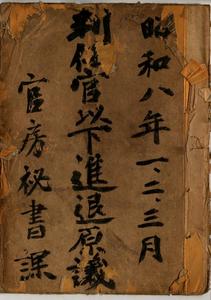 昭和八年一、二、三月
判任官以下進退原議
官房秘書課